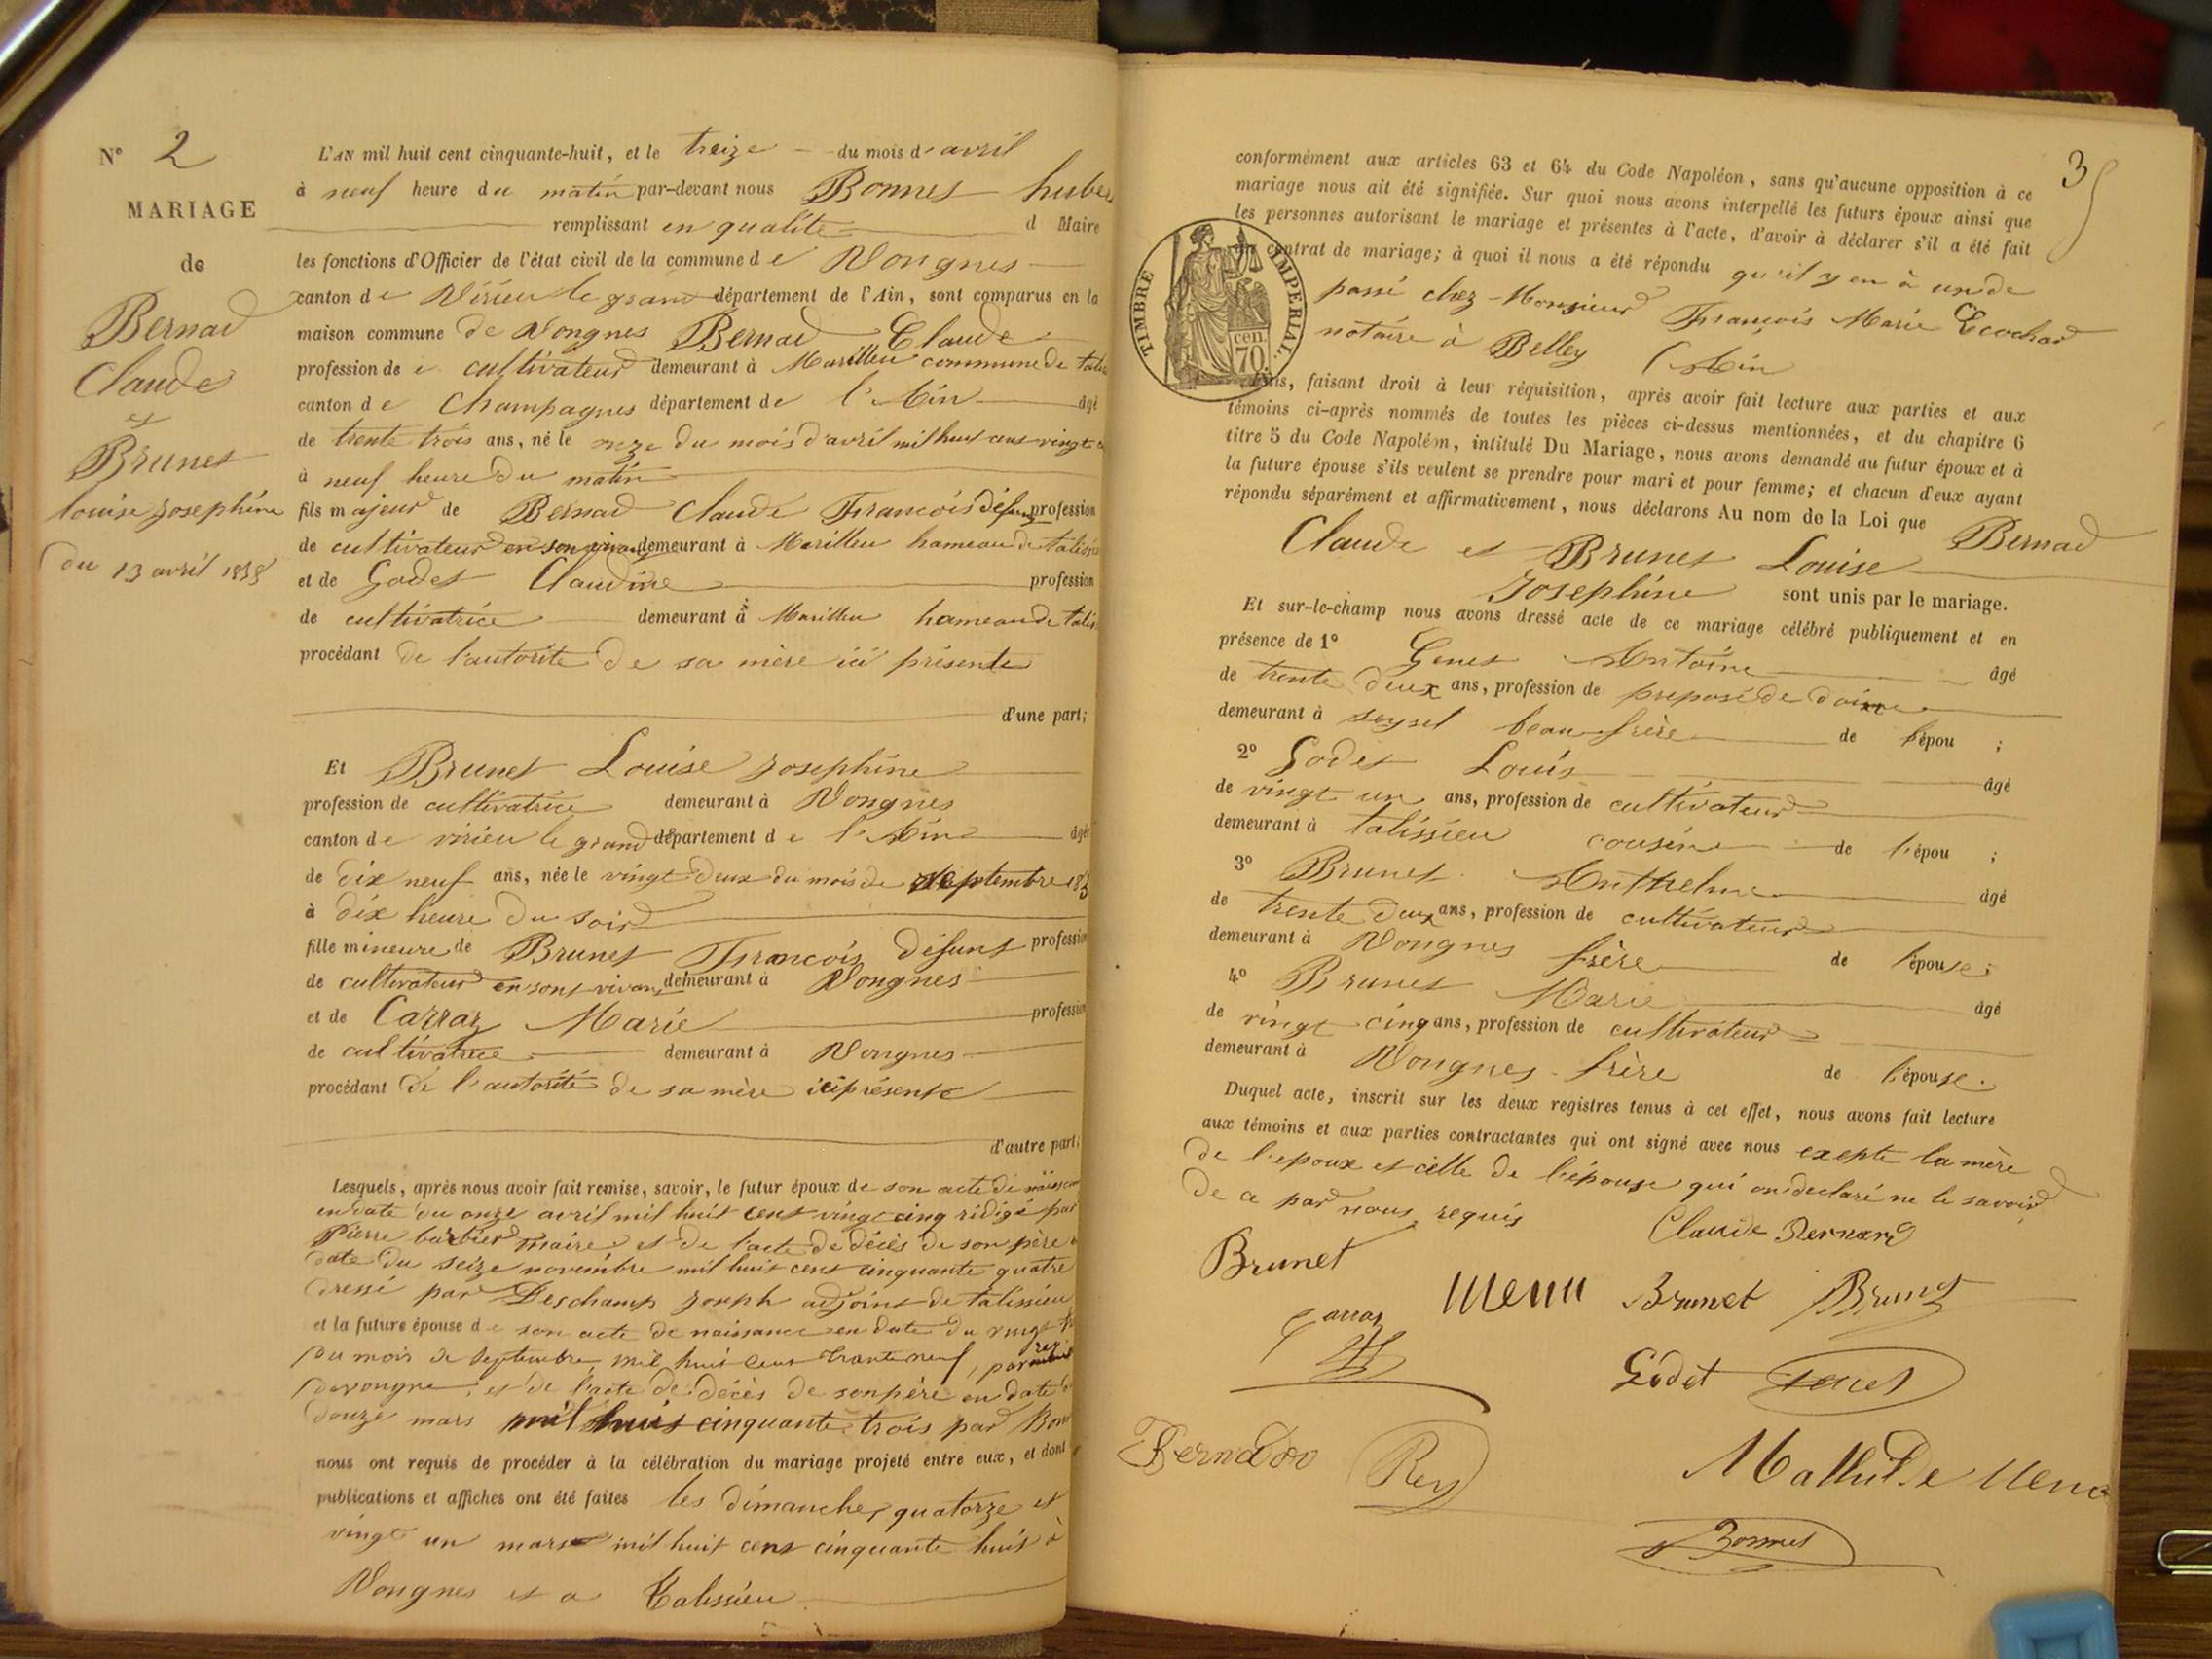 N° 2
MARIAGE
de
Bernad
Claude
et
Brunet
louise Josephine
du 13 avril 1858
L'AN mil huit cent cinquante-huit, et le treize du mois d'avril
à neuf heure du matin par-devant nous Bonnet huber
remplissant en qualité d Maire
les fonctions d'Officier de l'état civil de la commune de Vongnes
canton de Virieu le grand département de l'Ain, sont comparus en la
maison commune de Vongnes Bernad Claude
profession de cultivateur demeurant à Marillieu commune de talis
canton de Champagnes département de l'Ain âgé
de trente trois ans, né le onze du mois d'avril mil huit cens vingt
à neuf heure du matin
fils majeur de Bernad Claude Francois défunt profession
de cultivateur en son vivant demeurant à Marillieu hameau de talissi
et de Godet Claudine profession
de cultivatrice demeurant à Marillieu hameau de talis
procédant de l'autorité de sa mère ici présente
d'une part;
Et Brunet Louise Josephine
profession de cultivatrice demeurant à Vongnes
canton de virieu le grand département de l'Ain âgé
de dix neuf ans, née le vingt deux du mois de septembre 183
à dix heure du soir
fille mineure de Brunet Francois défunt profession
de cultivateur en sont vivant demeurant à Vongnes
et de Carraz Marie profession
de cultivatrice demeurant à Vongnes
procédant de l'autorité de sa mère ici présente
d'autre part;
Lesquels, après nous avoir fait remise, savoir, le futur époux de son acte de naissan
en date du onze avril mil huit cent vingt cinq rédigé par
Pierre barbier maire et de l'acte de décès de son père
date du seize novembre mil huit cens cinquante quatre
dressé par Deschamp Joseph adjoint de talissieu
et la future épouse de son acte de naissance en date du vingt
du mois de septembre mil huit cent trante neuf, par
de vongne, et de l'acte de décès de son père en date
douze mars mil huit cinquante trois par Bon
nous ont requis de procéder à la célébration du mariage projeté entre eux, et dont
publications et affiches ont été faites les dimanches quatorze et
vingt un mars mil huit cent cinquante huit à
Vongnes et a Talissieu
3
conformément aux articles 63 et 64 du Code Napoléon, sans qu'aucune opposition à ce
mariage nous ait été signifiée. Sur quoi nous avons interpellé les futurs époux ainsi que
les personnes autorisant le mariage et présentes à l'acte, d'avoir à déclarer s'il a été fait
contrat de mariage; à quoi il nous a été répondu qu'il y en à un de
passé chez Monsieur François Marie Ecochard
notaire à Belley (Ain
TIMBRE IMPERIAL.
cen.
70
faisant droit à leur réquisition, après avoir fait lecture aux parties et aux
témoins ci-après nommés de toutes les pièces ci-dessus mentionnées, et du chapitre 6
titre 5 du Code Napoléon, intitulé Du Mariage, nous avons demandé au futur époux et à
la future épouse s'ils veulent se prendre pour mari et pour femme; et chacun d'eux ayant
répondu séparément et affirmativement, nous déclarons Au nom de la Loi que Bernad
Claude et Brunet Louise
Josephine sont unis par le mariage.
Et sur-le-champ nous avons dressé acte de ce mariage célébré publiquement et en
présence de 1° Genet Antoine âgé
de trente deux ans, profession de preposé de
demeurant à seysel beau frère de l'épou ;
2° Godet Louis âgé
de vingt un ans, profession de cultivateur
demeurant à talissieu cousin de l'épou ;
3° Brunet Anthelme âgé
de trente deux ans, profession de cultivateur
demeurant à Vongnes frère de l'épouse;
4° Brunet Marie âgé
de vingt cinq ans, profession de cultivateur
demeurant à Vongnes frère de l'épouse.
Duquel acte, inscrit sur les deux registres tenus à cet effet, nous avons fait lecture
aux témoins et aux parties contractantes qui ont signé avec nous exepte la mère
de l'epoux et celle de l'épouse qui on declaré ne le savoir
de ce par nous requis
Claude Bernard
Brunet
Brunet Brunet
Carraz
Godet Genet
Rey
Bonnet